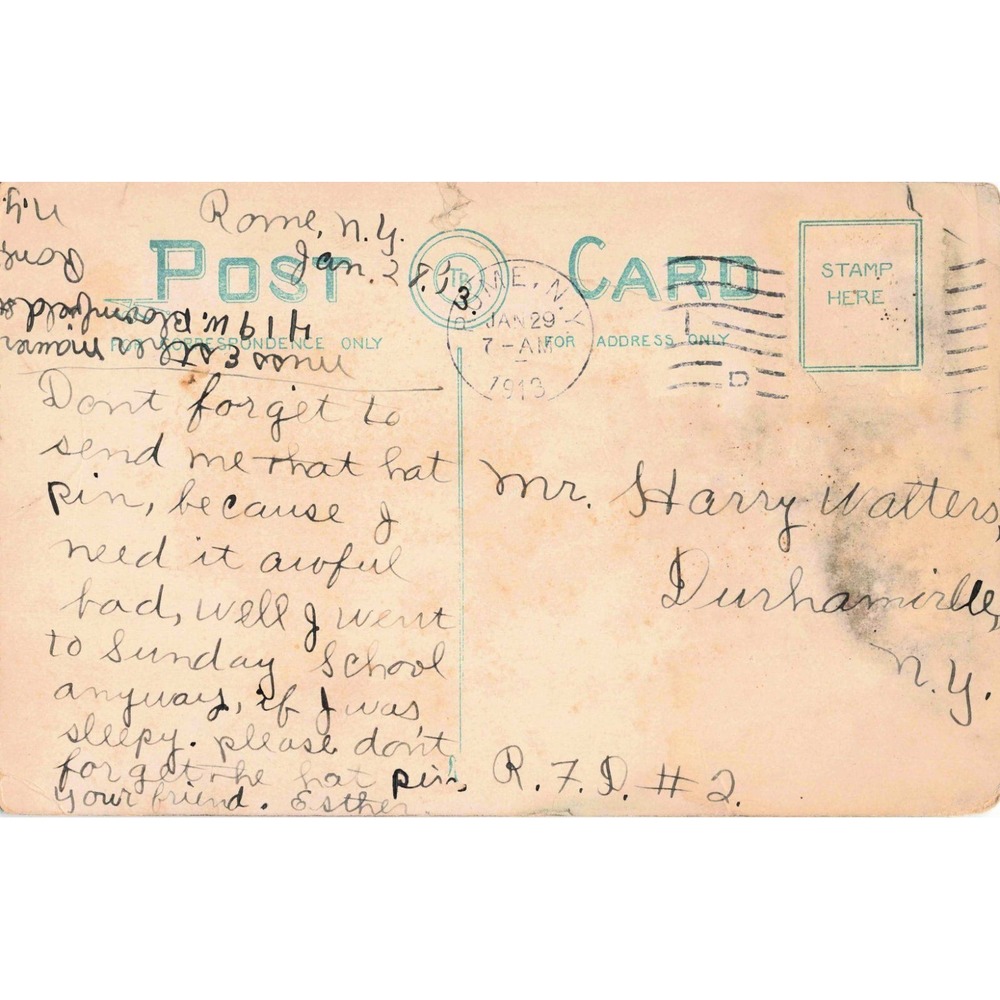 Rome, N.Y.
Jan. 27. '13.
POST CARD
TR
ROME, N.Y.
JAN 29
7-AM
1913
D
STAMP
HERE
FOR CORRESPONDENCE ONLY
FOR ADDRESS ONLY
Miss Esther
419 W. Bloomfield st
Rome
N.Y.
Dont forget to
send me that hat
pin, because I
need it awful
bad, well I went
to Sunday School
anyway, if I was
sleepy. please don't
forget the hat pin,
your friend. Esther.
Mr. Harry Watters,
Durhamville,
N.Y.
R.F.D. #2.